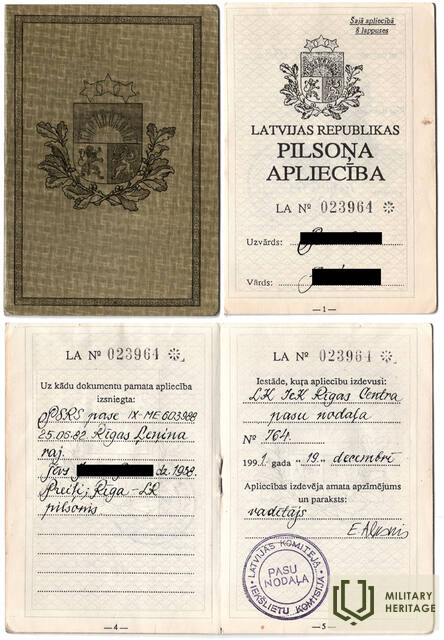 Šajā apliecībā
8 lappuses
LATVIJAS REPUBLIKAS
PILSOŅA
APLIECĪBA
LA № 023964
Uzvārds:
Vārds:
— 1 —
LA № 023964
Uz kādu dokumentu pamata apliecība
izsniegta:
PSRS pase IX-ME 603988
25.06.82 Rīgas Ļeņina
raj.
dz. 1958.
Preiļi; Rīga - LR
pilsonis
— 4 —
LA № 023964
Iestāde, kuŗa apliecību izdevusi:
LK IeK Rīgas Centra
pasu nodaļa
№ 764.
1991. gada "19." decembrī
Apliecības izdevēja amata apzīmējums
un paraksts:
vadītājs
LATVIJAS KOMITEJA
IEKŠLIETU KOMISIJA
PASU
NODAĻA
— 5 —
MILITARY
HERITAGE